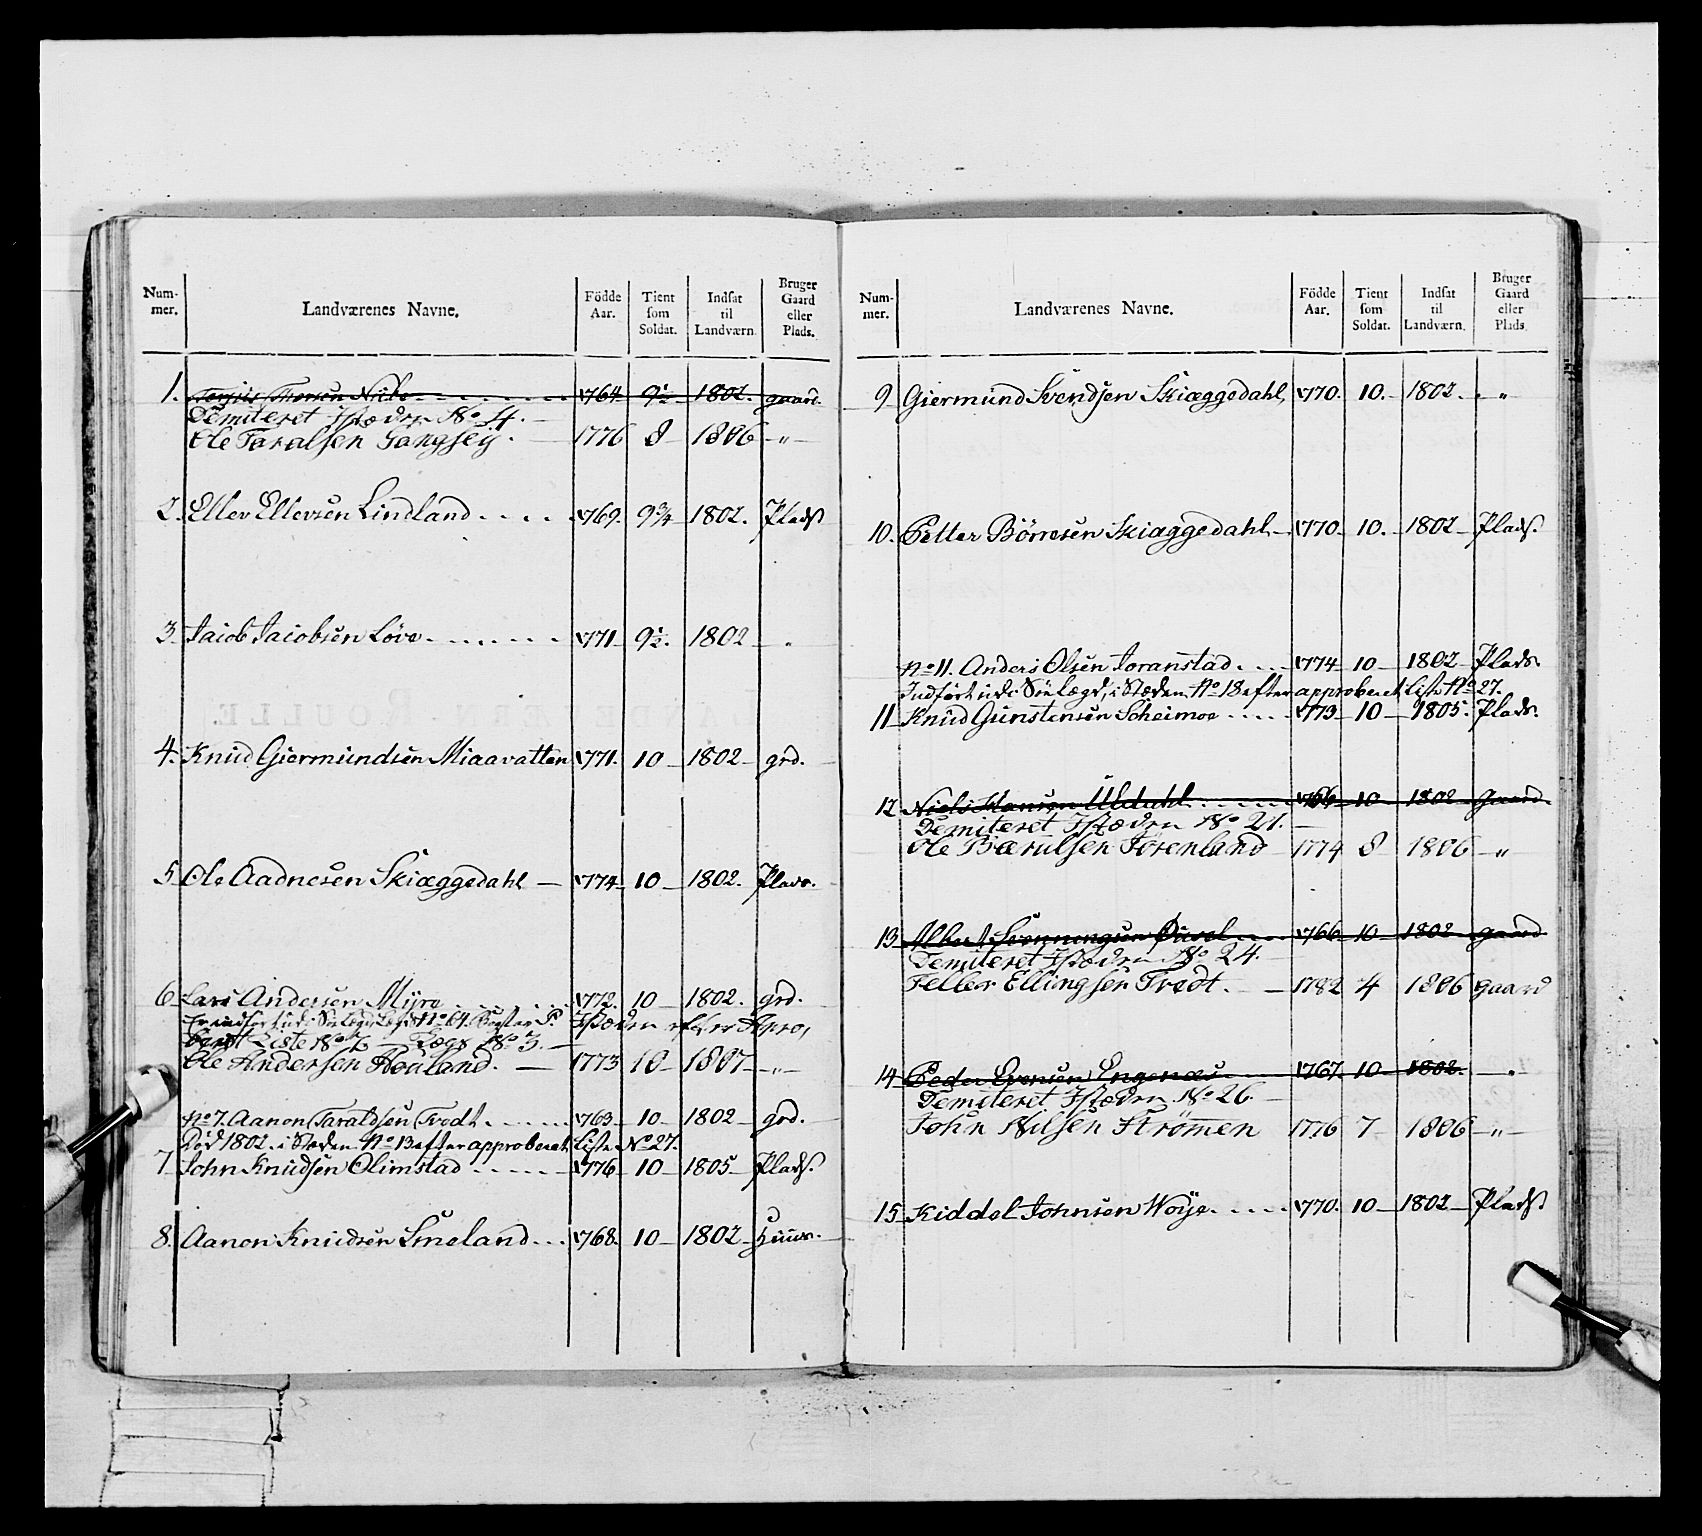 Num-
mer.
Landværenes Navne.
Födde
Aar.
Tient
som
Soldat.
Indsat
til
Landværn.
Bruger
Gaard
eller
Plads.
1. 1764 9½ 1802. gaard.
Demiteret Istæden No 4.
Ole Taralsen Gangsey. 1776 8 1806 — " —
2. Ellev Ellevsen Lindland. . . . 1769. 9¾ 1802. Plads
3. Jacob Jacobsen Löve. . . . . . 1771. 9½. 1802 — "
4. Knud Giermundsen Miaavatten 1771. 10 — 1802 — grd.
5. Ole Aadnesen Skiæggedahl — 1774 — 10 — 1802. Plads.
6. Lars Andersen Myre . . . . . 1772. 10 — 1802. grd.
Er indfört udi Söe No 64. Istæden efter Apro,
beret Liste No 76 — Lægd No 3. —
Ole Andersen Houland. — 1773 10 — 1807 — " —
No 7. Aanon Taraldsen Tvedt. . . . . 1763 — 10 — 1802 — grd.
Död 1802. i Stæden No 13 efter approberet Liste No 27.
7. John Knudsen Olimstad . . . . . 1776 — 10 — 1805 — Plads.
8. Aanon Knudsen Smeland. . . 1768. 10 — 1802 — Huus.
Num-
mer.
Landværenes Navne.
Födde
Aar.
Tient
som
Soldat.
Indsat
til
Landværn.
Bruger
Gaard
eller
Plads.
9. Giermund Svendsen Skiæggedahl, 1770. 10. — 1802. — "
10. Petter Börresen Skiæggedahl — 1770. 10. — 1802 — Plads.
No 11. Anders Olsen Joranstad. . . . 1774 — 10 — 1802 — Plads.
Indfört udi Söe Lægd, i Stæden No 18 efter approberet Liste No 27.
11 Knud Gunstensen Scheimoe . . . . . 1773 — 10 — 1805. Plads.
12. Niels Hansen Uldahl. . . . . . 1766 — 10 — 1802 — Gaard.
Demiteret Istæden No 21. —
Ole Bærulsen Törenland 1774 8 1806 — " —
13. Albert Svenningsen 1766 — 10 — 1802 — gaard
Demiteret Istæden No 24. —
Tellef Ellingsen Tvedt. — 1782 4 1806 gaard
14. Peder Evensen Engenæs . . . 1767. 10 — 1802. — "
Demiteret Istæden No 26. —
John Nilsen Strömen 1776 7 — 1806 — " —
15. Kiddel Johnsen Woÿe. . . . . 1770. 10 — 1802 — Plads